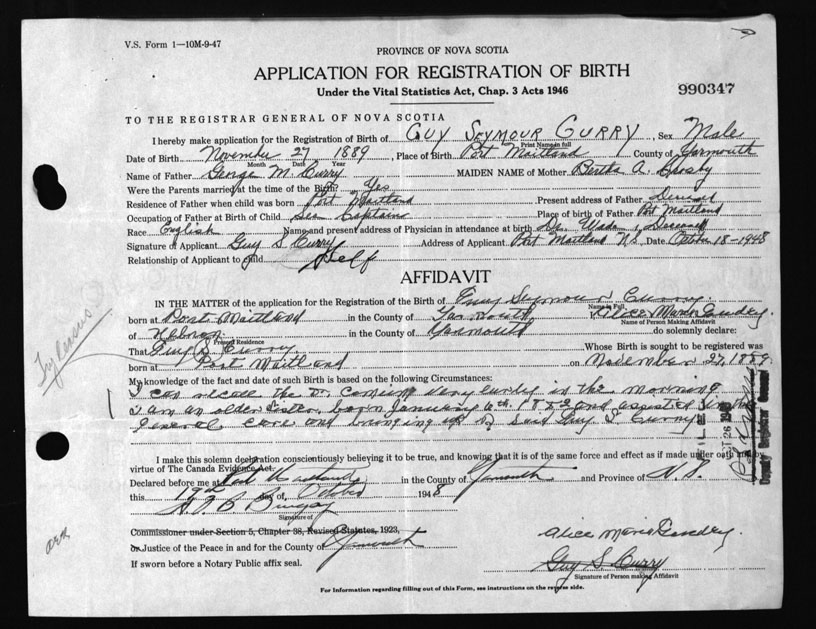 V.S. Form 1—10M-9-47
PROVINCE OF NOVA SCOTIA
APPLICATION FOR REGISTRATION OF BIRTH
Under the Vital Statistics Act, Chap. 3 Acts 1946
990347
TO THE REGISTRAR GENERAL OF NOVA SCOTIA
I hereby make application for the Registration of Birth of GUY SEYMOUR CURRY, Sex Male
Print Name in full
Date of Birth November 27 1889, Place of Birth Port Maitland County of Yarmouth
Month Date Year
Name of Father George M. Curry MAIDEN NAME of Mother Bertha A. Crosby
Were the Parents married at the time of the Birth? Yes
Residence of Father when child was born Port Maitland Present address of Father Deceased
Occupation of Father at Birth of Child Sea Captain Place of birth of Father Port Maitland
Race English Name and present address of Physician in attendance at birth Dr. Deceased
Signature of Applicant Guy S Curry Address of Applicant Port Maitland N.S. Date October 18-1948
Relationship of Applicant to child Self
AFFIDAVIT
IN THE MATTER of the application for the Registration of Birth of Guy Seymour Curry
born at Port Maitland in the County of Yarmouth, Alice Marie
Name in Full
Name of Person Making Affidavit
of Hebron in the County of Yarmouth do solemnly declare:
Present Residence
That Guy S Curry Whose Birth is sought to be registered was
born at Port Maitland on November 27, 1889
My knowledge of the fact and date of such Birth is based on the following Circumstances:
I can recall the Dr. coming very early in the morning.
I am an older sister, born January 6th, and assisted in the
general care and bringing up of said Guy S. Curry
I make this solemn declaration conscientiously believing it to be true, and knowing that it is of the same force and effect as if made under oath and by
virtue of The Canada Evidence Act.
Declared before me at in the County of Yarmouth and Province of N.S.
this 19th day of October 1948
Signature of
Commissioner under Section 5, Chapter 38, Revised Statutes, 1923,
or Justice of the Peace in and for the County of Yarmouth
If sworn before a Notary Public affix seal.
Alice Marie
Guy S Curry
Signature of Person making Affidavit
For Information regarding filling out of this Form, see instructions on the reverse side.
Deputy Registrar General